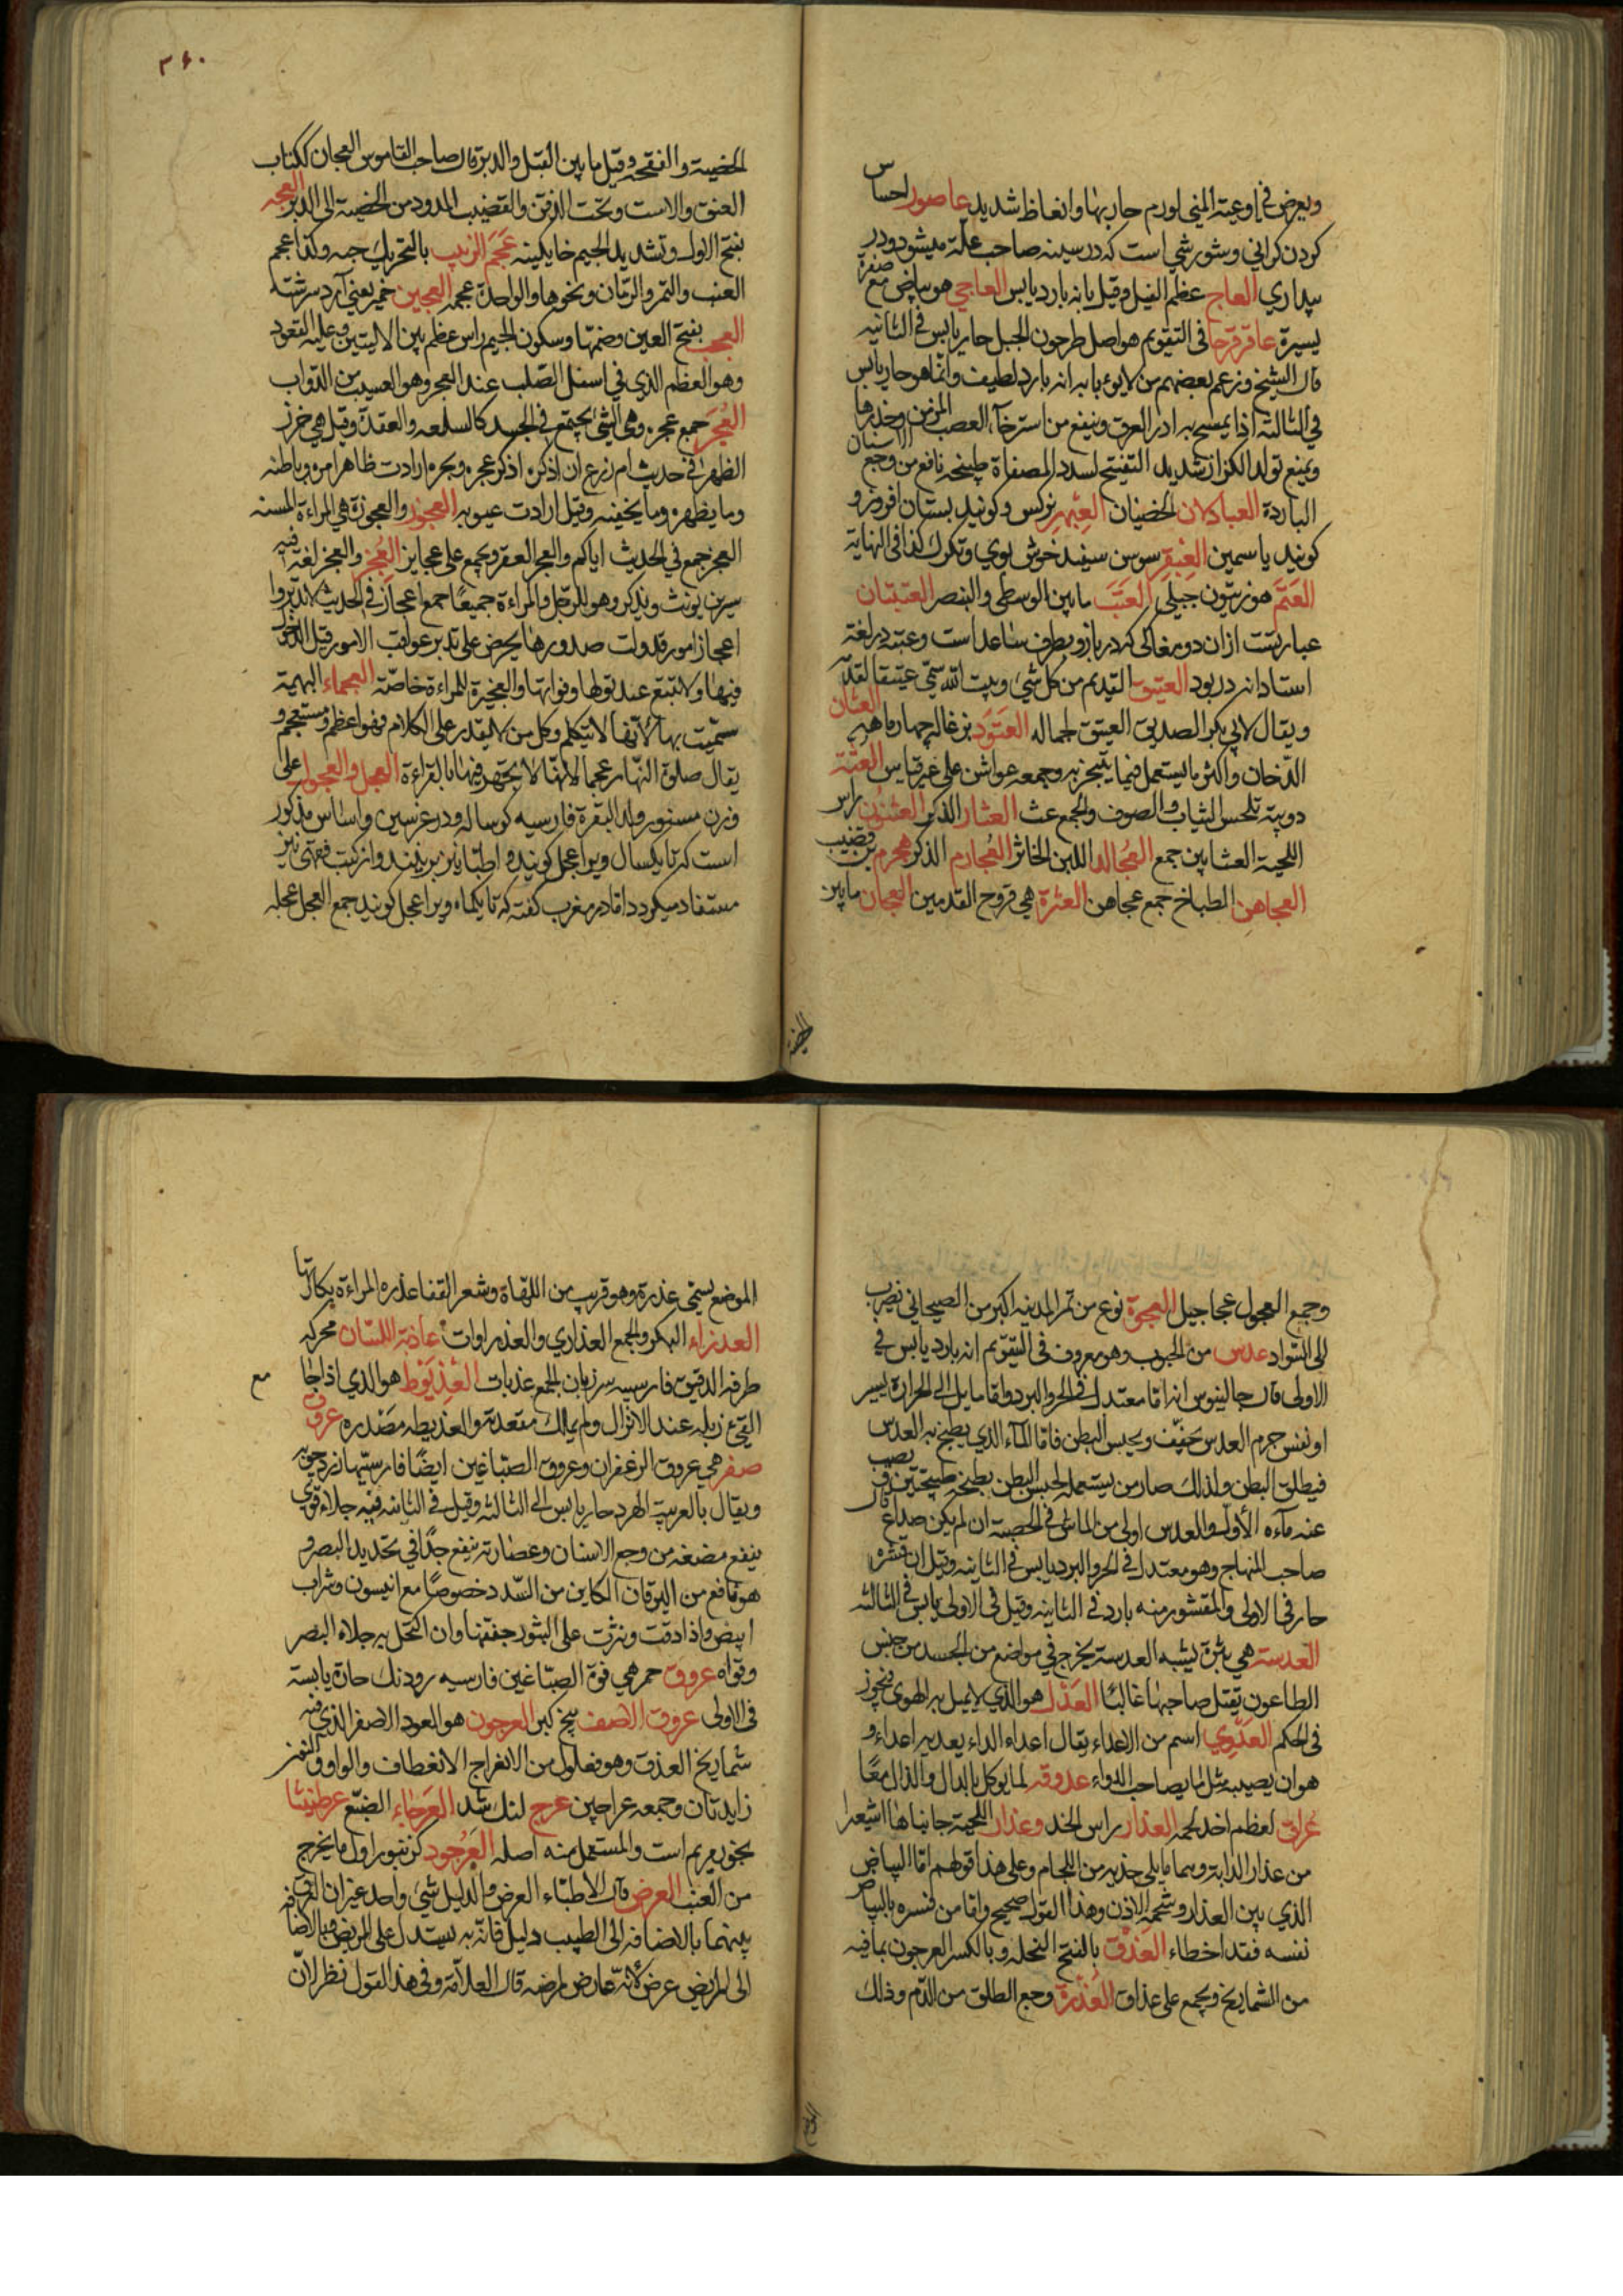 ويعرض في اوعية المني لورم حار بها وانعاظ شديد عاصور احساس
كردن كراني وشورشي است كه در سينه صاحب علة ميشود ودر
بيداري العاج عظم الفيل وقيل بانه بارد يابس العاجي هو بياض مع صفرة
يسيرة عاقرقرحا في التقويم هو اصل طرخون الجبل حار يابس في الثانيه
قال الشيخ وزعم بعضهم من لا يوء بابه انه بارد لطيف وانما هو حار يابس
في الثالثة اذا يمسح به ادر العرق وينفع من استرخآء العصب المزمن وخدرها
ويمنع تولد الكزاز شديد التفتيح لسدد المصفاة طبيخه نافع من وجع الاسنان
الباردة العبادلان الخصيتان العبهر نركس وكويند بستان افروز و
كويند ياسمين العبقر سوسن سيفند خوش بوي وتكرك كذا في النهاية
العتم هو زيتون جبلي العتب ما بين الوسطى والبنصر العتبتان
عبارتست ازان دو مغاكى كه در بازو بطرف ساعد است وعتبه در لغة
استادانه در بود العتيق القديم من كل شيء وبيت الله سمي عتيقا لقدمه
ويقال لابي بكر الصديق العتيق لجماله العتود بزغاله چهار ماهه العثان
الدخان واكثر ما يستعمل فيما يتبخر به وجمعه عواثن على غير قياس العثة
دويبة تلحس الثياب والصوف والجمع عث العثار الذكر العثنون راس
اللحية العثانين جمع العجالد اللبن الخاثر العجارم الذكر عجرم بن قضيب
العجاهن الطباخ جمع عجاهن العثرة هي قروح القدمين العجان ما بين
الخصية
٢٤٠
الخصية والفقحة وقيل ما بين القبل والدبر قال صاحب القاموس العجان ككتاب
العنق والاست وتحت الذقن والقضيب الممدود من الخصية الى الدبر العجه
بفتح الاول وتشديد الجيم خايكينه عجم الزبيب بالتحريك حبه وكذا عجم
العنب والتمر والرمان ونحوها والواحدة عجمه العجين خمير يعني آرد سرشته
العجب بفتح العين وضمها وسكون الجيم راس عظم بين الاليتين وعليه القعود
وهو العظم الذي في اسفل الصلب عند العجز وهو العسيب من الدواب
العجر جمع عجرة وهي الشيء يجتمع في الجسد كالسلعه والعقدة وقيل هي خرز
الظهر في حديث ام زرع ان اذكره اذكر عجره وبجره ارادت ظاهر امره وباطنه
وما يظهره وما يخفيه وقيل ارادت عيوبه العجوز والعجوزة هي المراءة المسنه
العجز جمع في الحديث اياكم والعجز العقر ويجمع على عجايز العجز والعجز لغة فيه
سرين يونث ويذكر وهو للرجل والمراءة جميعا جمع اعجاز في الحديث لا تدبروا
اعجاز امور قد ولت صدورها يحرض على تدبر عواقب الامور قبل الدخول
فيها ولا تتبع عند توليها وفواتها والعجيزة للمراءة خاصة العجماء البهيمة
سميت بها لانها لا تتكلم وكل من لا يقدر على الكلام فهو اعجم ومستعجم و
يقال صلوة النهار عجما لانها لا يجهر فيها بالقراءة العجل والعجول على
وزن سنور ولد البقرة فارسيه كوساله ودر عرسين واساس مذكور
است كه تا يكسال ويرا عجل كويند واطبا نيز برينند وازكتب فقهى نيز
مستفاد ميكردد اما در مغرب كفته كه تا يكماه ويرا عجل كويند جمع العجل عجله
وجمع العجول عجاجيل العجوة نوع من تمر المدينه اكبر من الصيحاني يضرب
الى السواد عدس من الحبوب وهو معروف في التقويم انه بارد يابس في
الاولى قال جالينوس انه اما معتدل في الحر والبرد واما مايل الى الحرارة يسير
او نفس جرم العدس يجفف ويحبس البطن فاما المآء الذي يطبخ به العدس
فيطلق البطن ولذلك صار من يستعمله لحبس البطن يطبخه طبختين ويصب
عنه مآءه الأول والعدس اولى من الماش في الحصبة ان لم يكن صداع قال
صاحب المنهاج وهو معتدل في الحر والبرد يابس في الثانيه وقيل ان قشره
حار في الاولى والمقشور منه بارد في الثانيه وقيل في الاولى يابس في الثالثه
العدسة هي بثرة يشبه العدسة يخرج في مواضع من الجسد من جنس
الطاعون يقتل صاحبها غالبا العدل هو الذي لا يميل به الهوى فيجوز
في الحكم العدوي اسم من الاعداء يقال اعداه الداء يعديه اعداء و
هو ان يصيبه مثل ما يصاحب الدواء عدوفه لما يوكل بالدال والذال معا
عراق لعظم اخذ لحمه العذار راس الخد وعذار اللحية جانباها اشيعرا
من عذار الدابة وهما ما يلي خديه من اللجام وعلى هذا قولهم اما البياض
الذي بين العذار وشحمة الاذن وهذا القول صحيح واما من فسره بالبياض
نفسه فقد اخطاء العذق بالفتح النخله وبالكسر العرجون بما فيه
من الشماريخ ويجمع على عذاق العذرة وجع الحلق من الدم وذلك
الموضع
الموضع يسمى عذرة وهو قريب من اللهاة وشعر القفا عذره المراءة بكارتها
العذراء البكر والجمع العذاري والعذراوات عاذبة اللسان محركه
طرفه الدقيق فارسيه سر زبان الجمع عذبات العذيوط هو الذي اذا جامع
القي زبله عند الانزال ولم يملك مقعدته والعذيطه مصدره عروق
صفر هي عروق الزعفران وعروق الصباغين ايضا فارسيتها زردچوبه
ويقال بالعربية الهرد حار يابس الى الثالثه وقيل في الثانيه فيه جلاء قوي
ينفع مضغه من وجع الاسنان وعصارته ينفع جدا في تحديد البصر و
هو نافع من اليرقان الكاين من السدد خصوصا مع انيسون وشراب
ابيض واذا دقت ونثرت على البثور جففها وان اكتحل به جلاه البصر
وقواه عروق حمر هي فوة الصباغين فارسيه رودنك حارة يابسة
في الاولى عروق الاصف بيخ كبر العرجون هو العود الاصفر الذي فيه
شماريخ العذق وهو فعلول من الانعراج الانعطاف والواو والنون
زايدتان وجمعه عراجين عرج لنك شد العرجاء الضبع عرطنيثا
بخور مريم است والمستعمل منه اصله العرجود كزنبور اول ما يخرج
من العنب العرض قال الاطباء العرض والدليل شيء واحد غير ان الفرق
بينهما بالاضافه الى الطبيب دليل فانه به يستدل على المرض وبالاضافه
الى المريض عرض لانه عارض لمرضه قال العلامة وفي هذا القول نظر لان